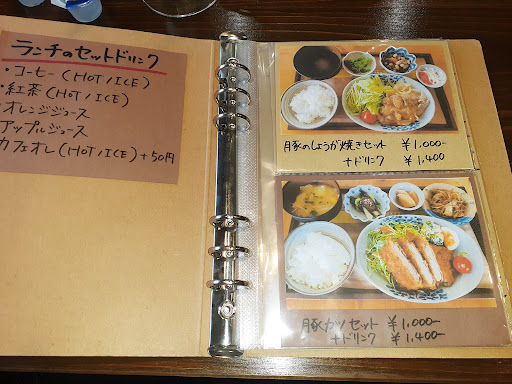 ランチのセットドリンク
・コーヒー(HOT/ICE)
・紅茶(HOT/ICE)
オレンジジュース
アップルジュース
カフェオレ(HOT/ICE)+50円
豚のしょうが焼きセット ¥1,000-
+ドリンク ¥1,400
豚カツセット ¥1,000-
+ドリンク ¥1,400